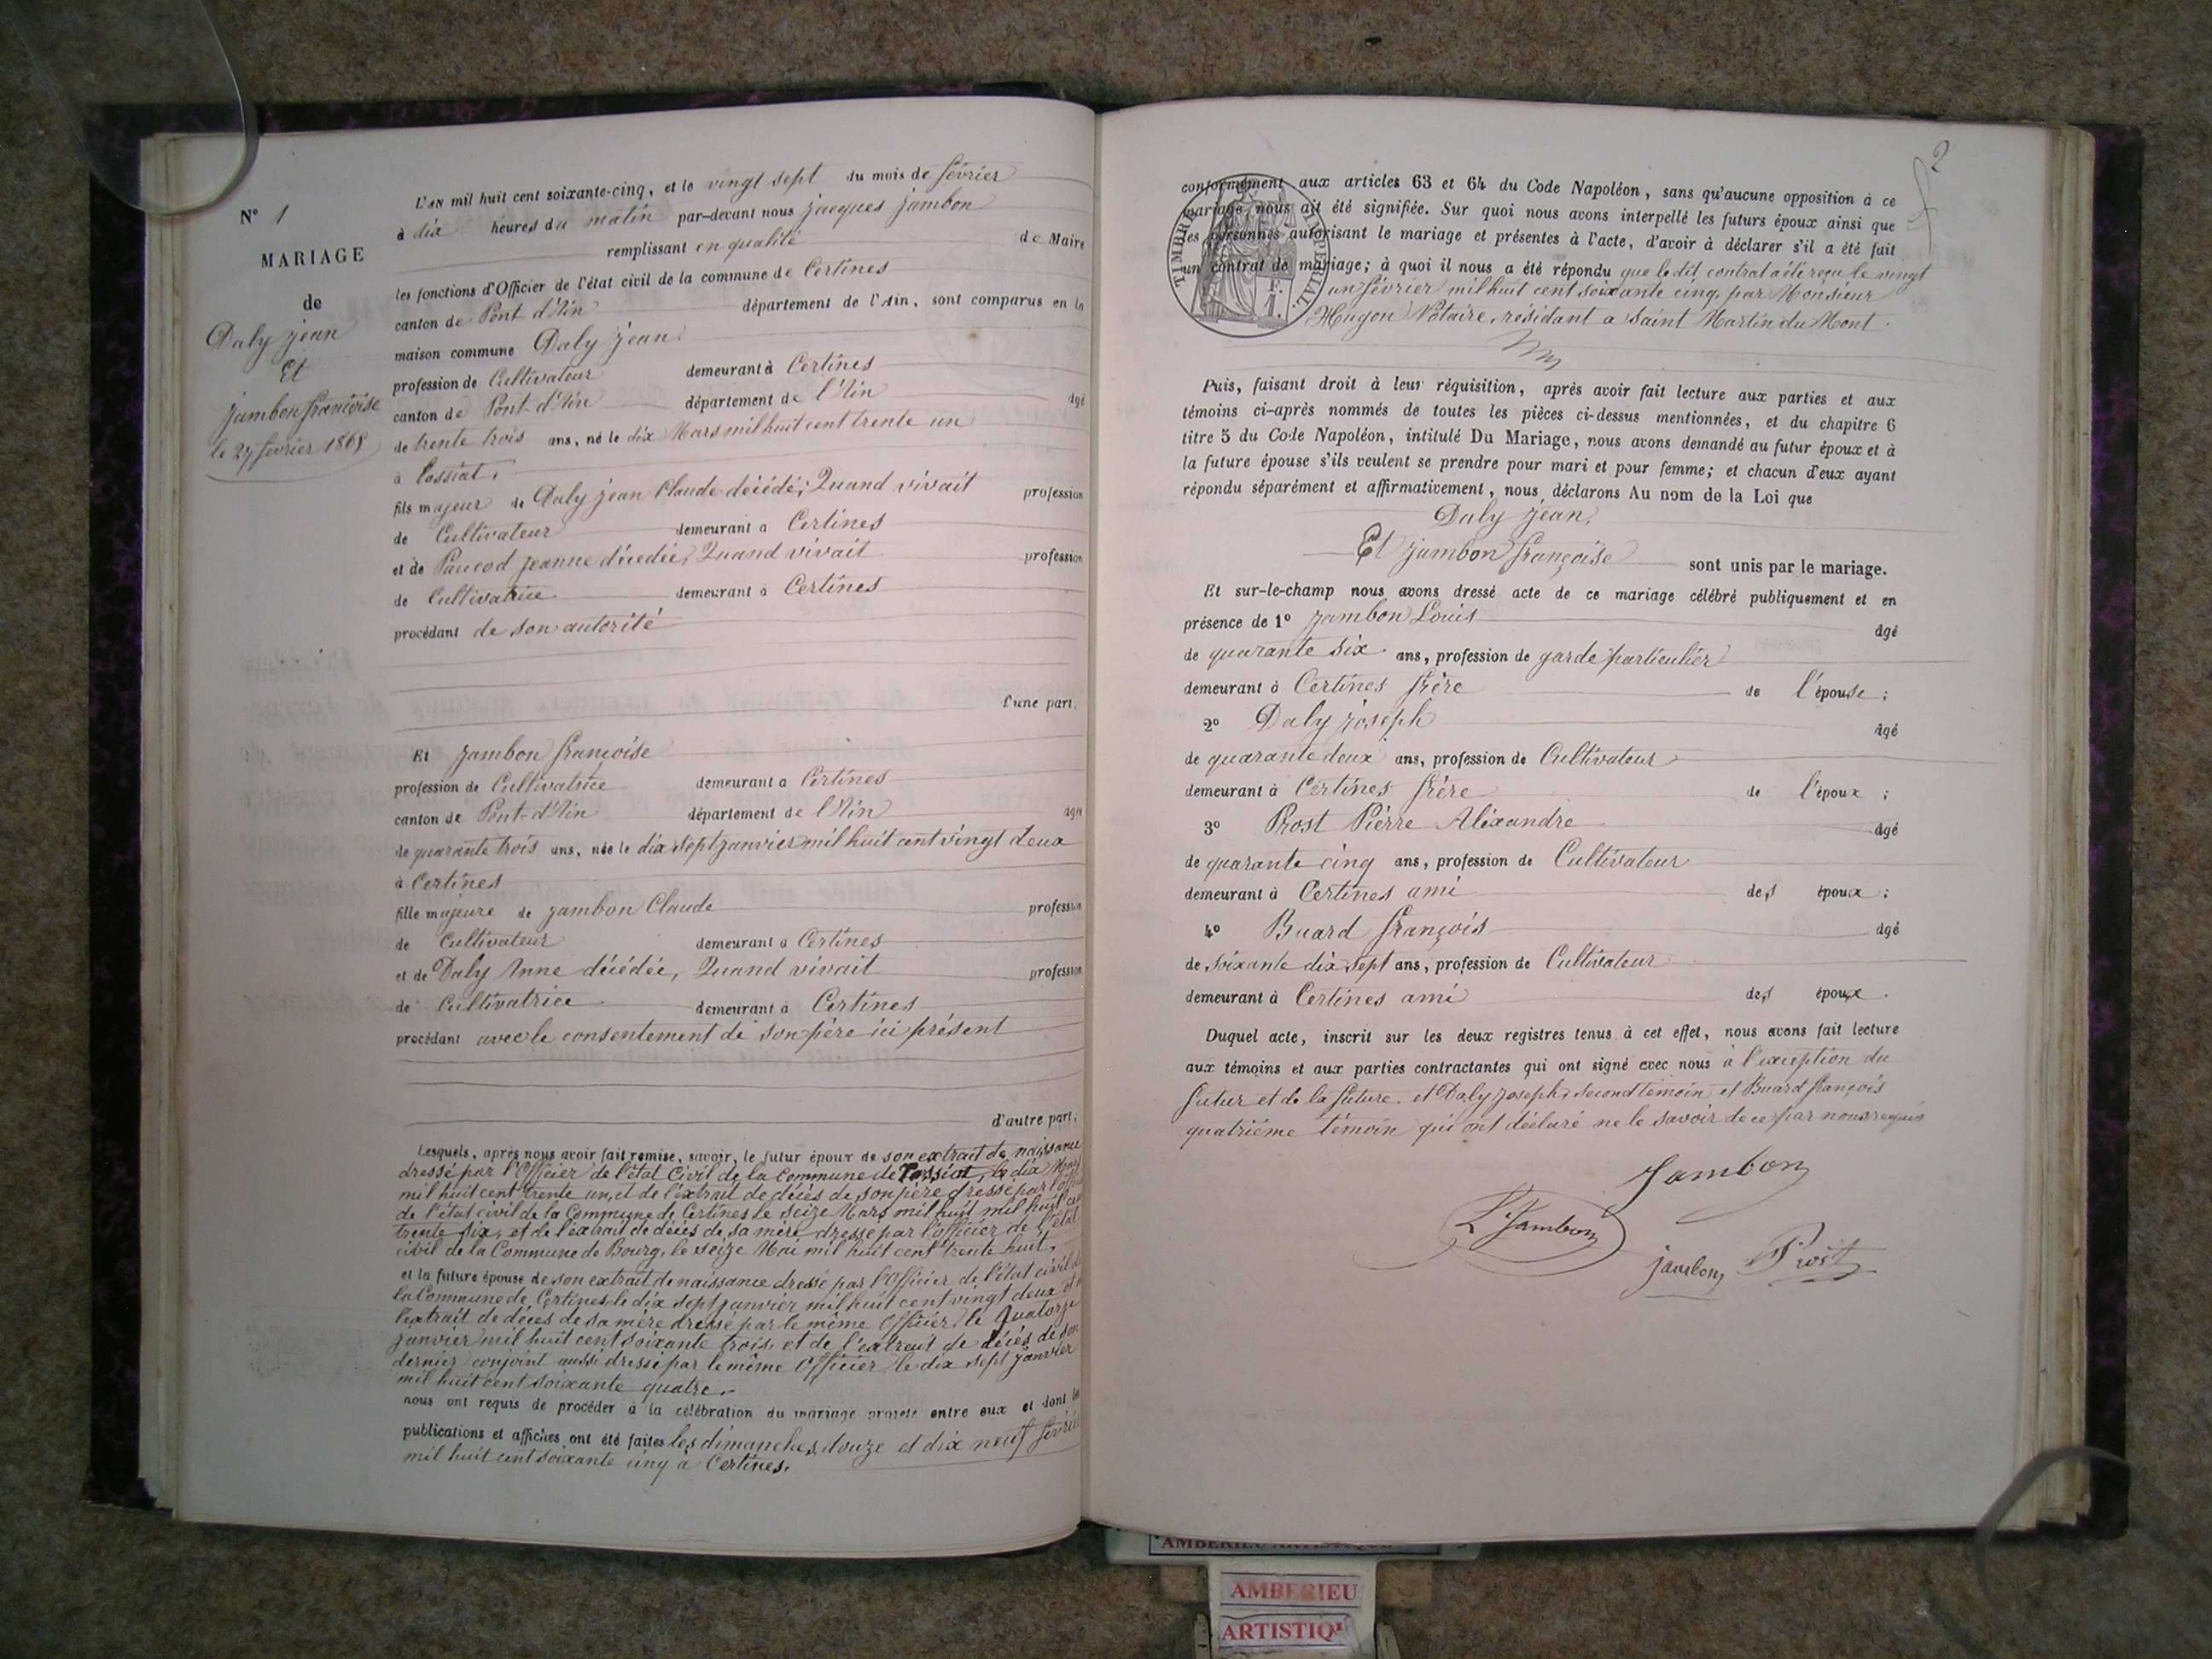 N° 1
MARIAGE
de
Daly jean
Et
jambon françoise
le 27 février 1865
L'AN mil huit cent soixante-cinq, et le vingt sept du mois de février
à dix heures du matin par-devant nous jacques jambon
remplissant en qualité de Maire
les fonctions d'Officier de l'état civil de la commune de Certines
canton de Pont d'Ain département de l'Ain, sont comparus en la
maison commune Daly jean.
profession de Cultivateur demeurant à Certines
canton de Pont-d'Ain département de l'Ain âgé
de trente trois ans, né le dix Mars mil huit cent trente un
à Tossiat.
fils majeur de Daly jean Claude décédé; Quand vivait profession
de Cultivateur demeurant à Certines
et de jeanne décédée, Quand vivait profession
de Cultivatrice demeurant à Certines
procédant de son autorité
l'une part.
Et jambon françoise
profession de Cultivatrice demeurant à Certines
canton de Pont-d'Ain département de l'Ain âgée
de quarante trois ans, née le dix sept janvier mil huit cent vingt deux
à Certines
fille majeure de jambon Claude profession
de Cultivateur demeurant à Certines
et de Daly Anne décédée, Quand vivait profession
de Cultivatrice demeurant à Certines
procédant avec le consentement de son père ici présent
d'autre part.
Lesquels, après nous avoir fait remise, savoir, le futur époux de son extrait de naissance
dressé par l'Officier de l'état Civil de la Commune de Tossiat, le dix Mars
mil huit cent trente un, et de l'extrait de décès de son père dressé par l'officier
de l'état civil de la Commune de Certines le seize Mars mil huit mil huit cent
trente six, et de l'extrait de décès de sa mère dressé par l'officier de l'état
civil de la Commune de Bourg, le seize Mai mil huit cent trente huit,
et la future épouse de son extrait de naissance dressé par l'Officier de l'état civil de
la Commune de Certines le dix sept janvier mil huit cent vingt deux et de
l'extrait de décès de sa mère dressé par le même Officier, le Quatorze
janvier mil huit cent soixante trois, et de l'extrait de décès de son
dernier conjoint aussi dressé par le même Officier le dix sept janvier
mil huit cent soixante quatre.
nous ont requis de procéder à la célébration du mariage projeté entre eux et dont les
publications et affiches ont été faites les dimanches, douze et dix neuf février
mil huit cent soixante cinq à Certines.
2
TIMBRE IMPÉRIAL
conformément aux articles 63 et 64 du Code Napoléon, sans qu'aucune opposition à ce
mariage nous ait été signifiée. Sur quoi nous avons interpellé les futurs époux ainsi que
les personnes autorisant le mariage et présentes à l'acte, d'avoir à déclarer s'il a été fait
un contrat de mariage; à quoi il nous a été répondu que le dit contrat a été reçu le vingt
un février mil huit cent soixante cinq, par Monsieur
Hugon Notaire, résidant a Saint Martin du Mont.
Puis, faisant droit à leur réquisition, après avoir fait lecture aux parties et aux
témoins ci-après nommés de toutes les pièces ci-dessus mentionnées, et du chapitre 6
titre 5 du Code Napoléon, intitulé Du Mariage, nous avons demandé au futur époux et à
la future épouse s'ils veulent se prendre pour mari et pour femme; et chacun d'eux ayant
répondu séparément et affirmativement, nous déclarons Au nom de la Loi que
Daly jean,
Et jambon françoise sont unis par le mariage.
Et sur-le-champ nous avons dressé acte de ce mariage célébré publiquement et en
présence de 1° jambon Louis âgé
de quarante six ans, profession de garde particulier
demeurant à Certines frère de l'épouse;
2° Daly joseph âgé
de quarante deux ans, profession de Cultivateur
demeurant à Certines frère de l'époux;
3° Prost Pierre Alexandre âgé
de quarante cinq ans, profession de Cultivateur
demeurant à Certines ami des époux;
4° Buard françois âgé
de soixante dix sept ans, profession de Cultivateur
demeurant à Certines ami des époux.
Duquel acte, inscrit sur les deux registres tenus à cet effet, nous avons fait lecture
aux témoins et aux parties contractantes qui ont signé avec nous à l'exception du
futur et de la future. et Daly joseph, second témoin et Buard françois
quatrième témoin qui ont déclaré ne le savoir de ce par nous requis
Jambon
L. Jambon
jambon Prost
AMBERIEU ARTISTIQUE
AMBERIEU
ARTISTIQU